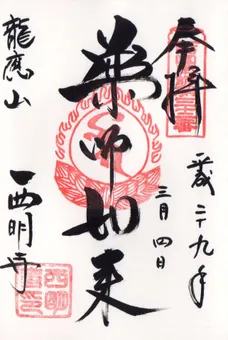 奉拝
平成二十九年
三月四日
薬師如来
龍應山
西明寺
西明寺印